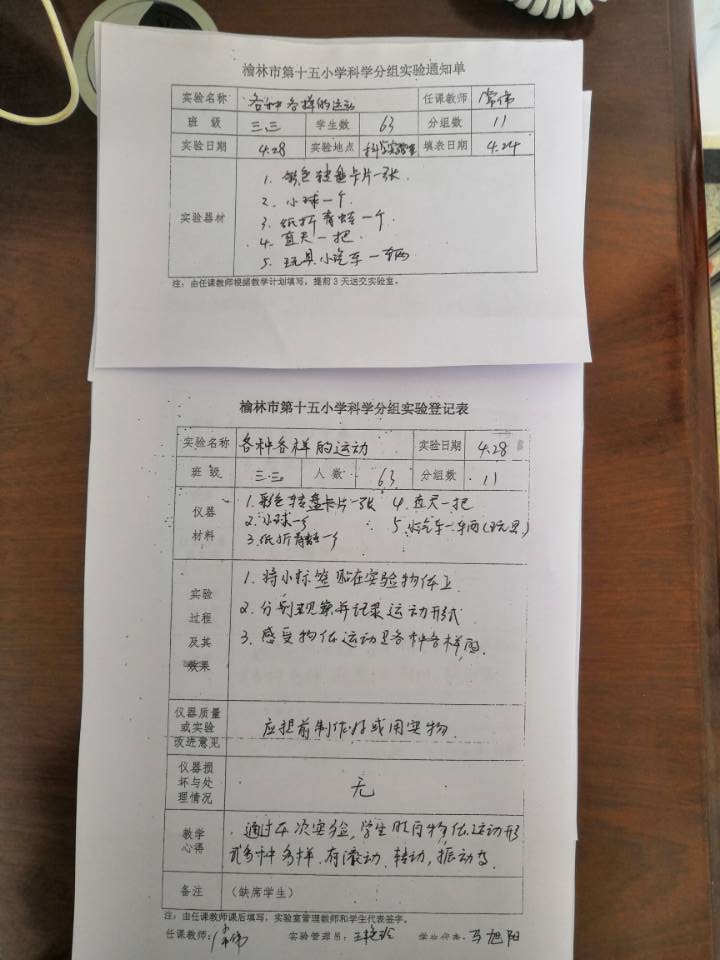 榆林市第十五小学科学分组实验通知单
实验名称 各种各样的运动 任课教师 常伟
班 级 三.三 学生数 63 分组数 11
实验日期 4.28 实验地点 科学实验室 填表日期 4.24
实验器材
1. 彩色转盘卡片一张.
2. 小球一个.
3. 纸折青蛙一个.
4. 直尺一把.
5. 玩具小汽车一辆
注：由任课教师根据教学计划填写，提前3天送交实验室。
榆林市第十五小学科学分组实验登记表
实验名称 各种各样的运动 实验日期 4.28
班 级 三.三 人 数 63 分组数 11
仪器
材料
1.彩色转盘卡片一张 4.直尺一把
2.小球一个 5.小汽车一辆(玩具)
3.纸折青蛙一个
实验
过程
及其
效果
1. 将小标签贴在实验物体上
2. 分别观察并记录运动形式
3. 感受物体运动是各种各样的.
仪器质量
或实验
改进意见
应提前制作好或用实物.
仪器损
坏与处
理情况
无
教学
心得
通过本次实验,学生明白物体运动形
式多种多样.有滚动.转动,振动等.
备注 （缺席学生）
注：由任课教师课后填写，实验室管理教师和学生代表签字。
任课教师：常伟 实验管理员： 学生代表：马旭阳